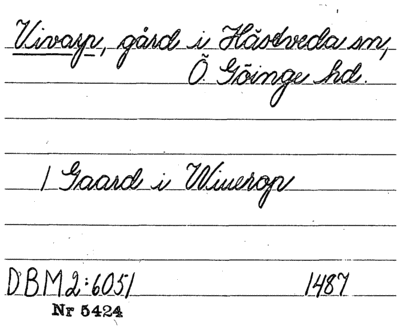 Vivarp, gård i Hästveda sn,
Ö Göinge hd.
1 Gaard i Wiuerop
DBM2:6051 1487
Nr 5424